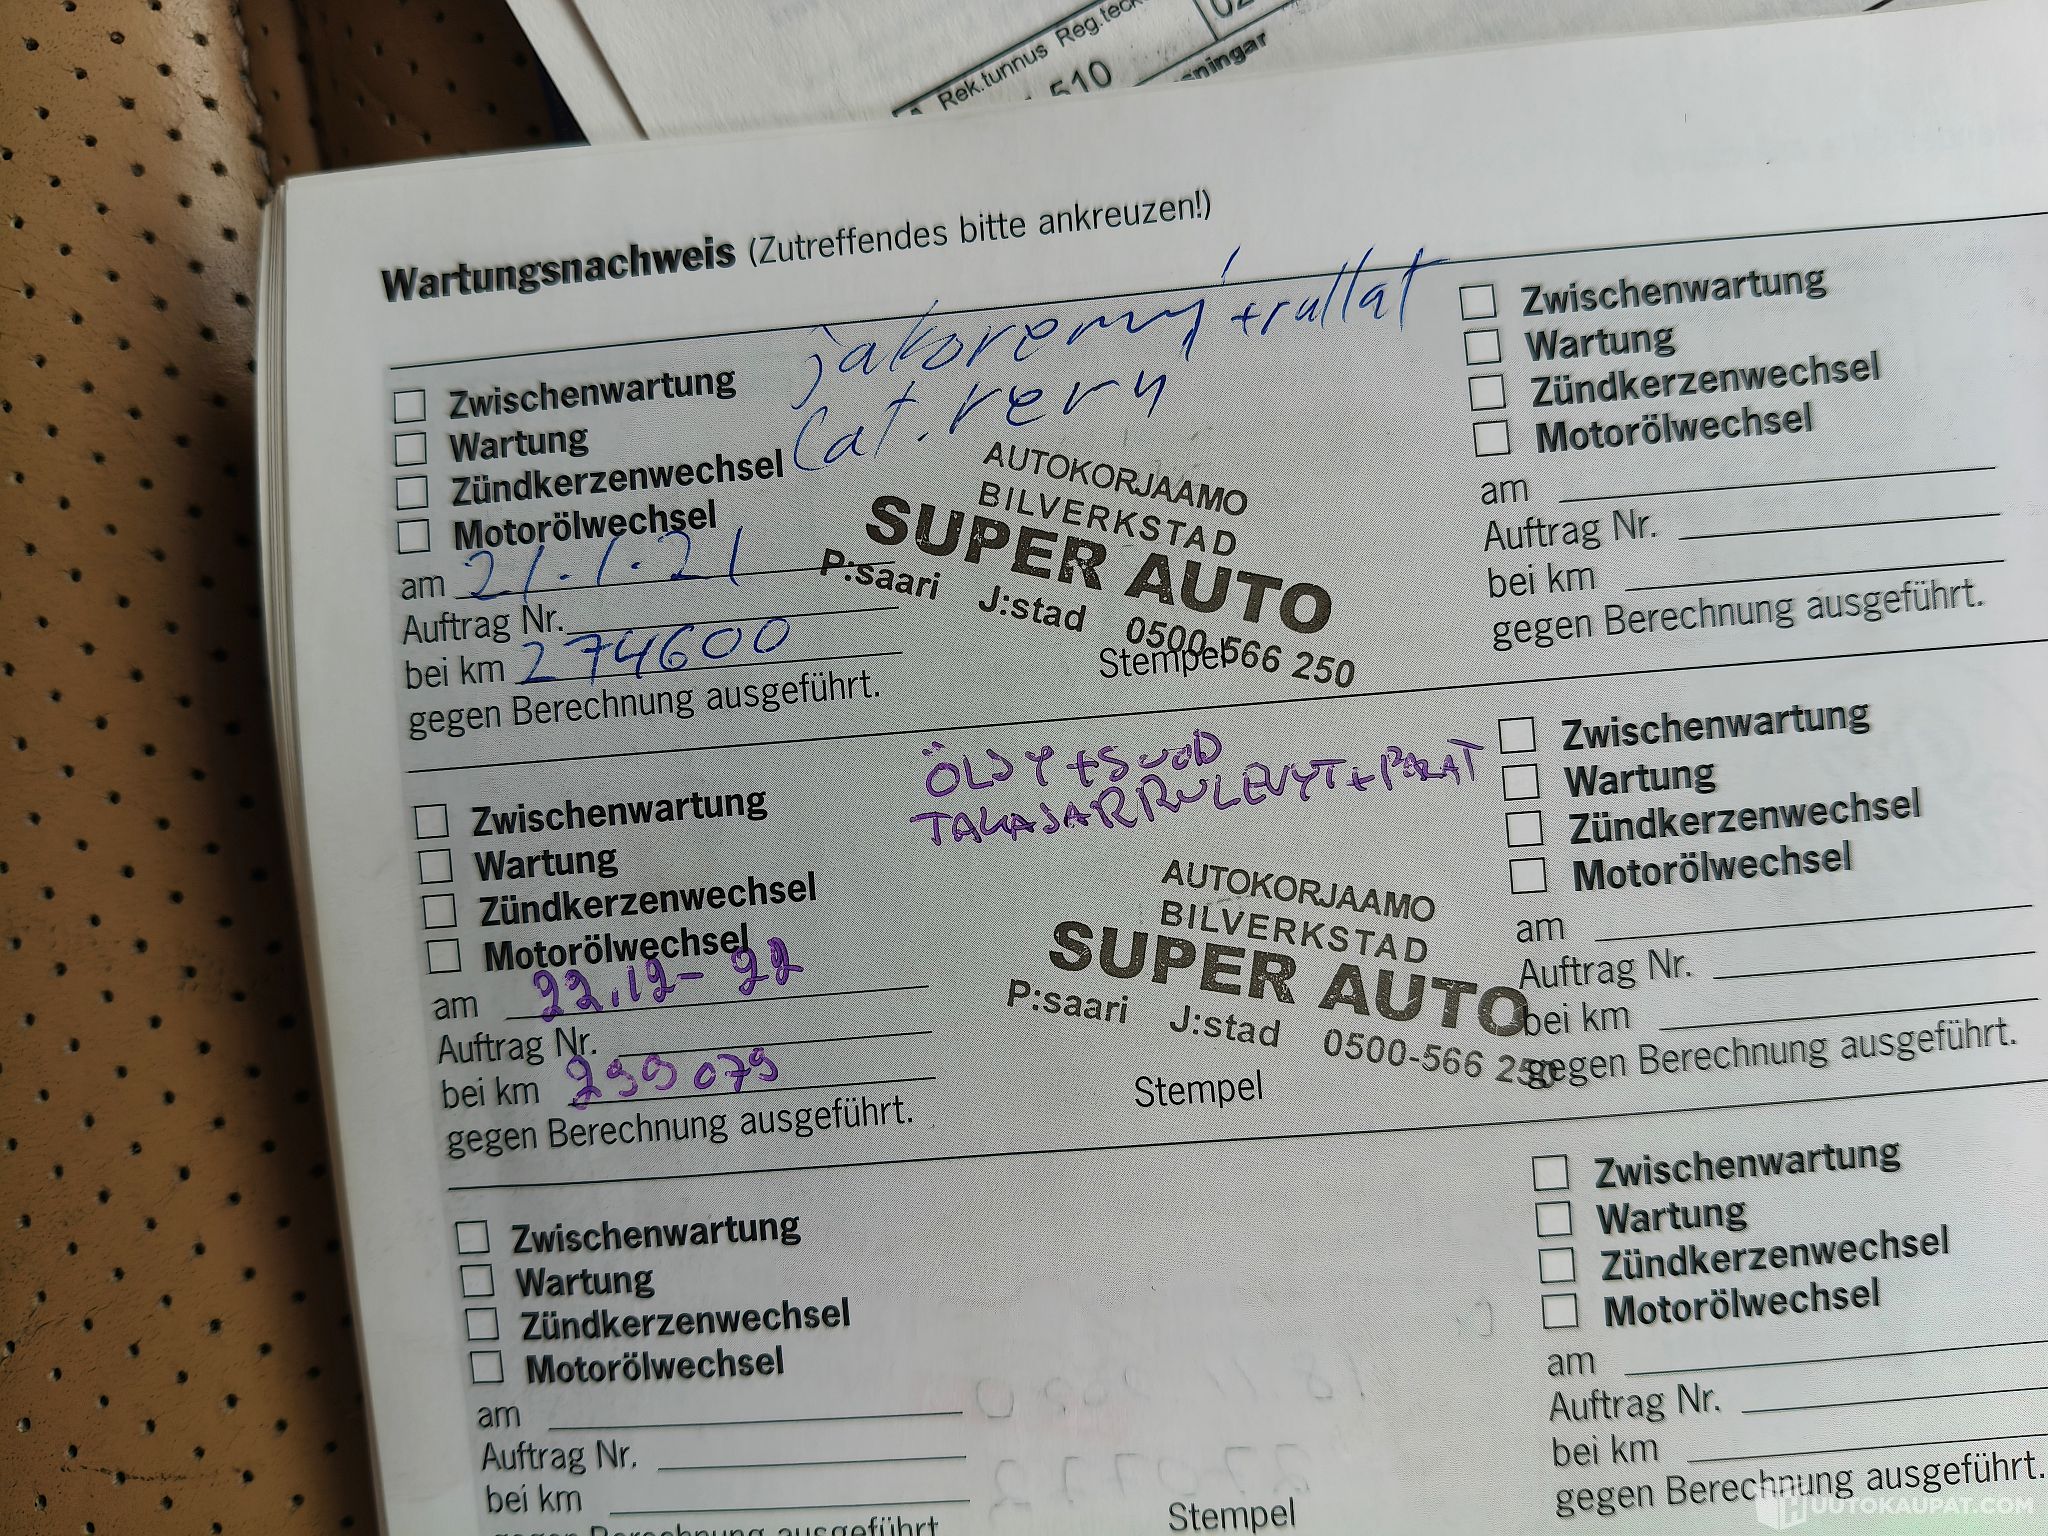 Rek.tunnus Reg.teck
510
sningar
Wartungsnachweis (Zutreffendes bitte ankreuzen!)
jakoremmi + rullat
Cat. remm
Zwischenwartung
Wartung
Zündkerzenwechsel
Motorölwechsel
am 21.1.21
Auftrag Nr.
bei km 274600
gegen Berechnung ausgeführt.
AUTOKORJAAMO
BILVERKSTAD
SUPER AUTO
P:saari J:stad 0500-566 250
Stempel
Zwischenwartung
Wartung
Zündkerzenwechsel
Motorölwechsel
am
Auftrag Nr.
bei km
gegen Berechnung ausgeführt.
ÖLJY + SUOD
TAKAJARRULEVYT + PALAT
Zwischenwartung
Wartung
Zündkerzenwechsel
Motorölwechsel
am 22.12-22
Auftrag Nr.
bei km 299079
gegen Berechnung ausgeführt.
AUTOKORJAAMO
BILVERKSTAD
SUPER AUTO
P:saari J:stad 0500-566 250
Stempel
Zwischenwartung
Wartung
Zündkerzenwechsel
Motorölwechsel
am
Auftrag Nr.
bei km
gegen Berechnung ausgeführt.
Zwischenwartung
Wartung
Zündkerzenwechsel
Motorölwechsel
am
Auftrag Nr.
bei km
gegen Berechnung ausgeführt
Stempel
Zwischenwartung
Wartung
Zündkerzenwechsel
Motorölwechsel
am
Auftrag Nr.
bei km
gegen Berechnung ausgeführt.
HUUTOKAUPAT.COM